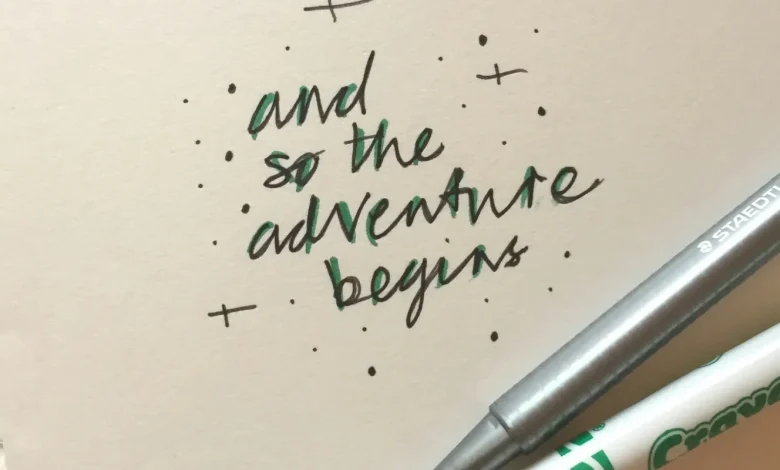 and
so the
adventure
begins
STAEDT
Crayo